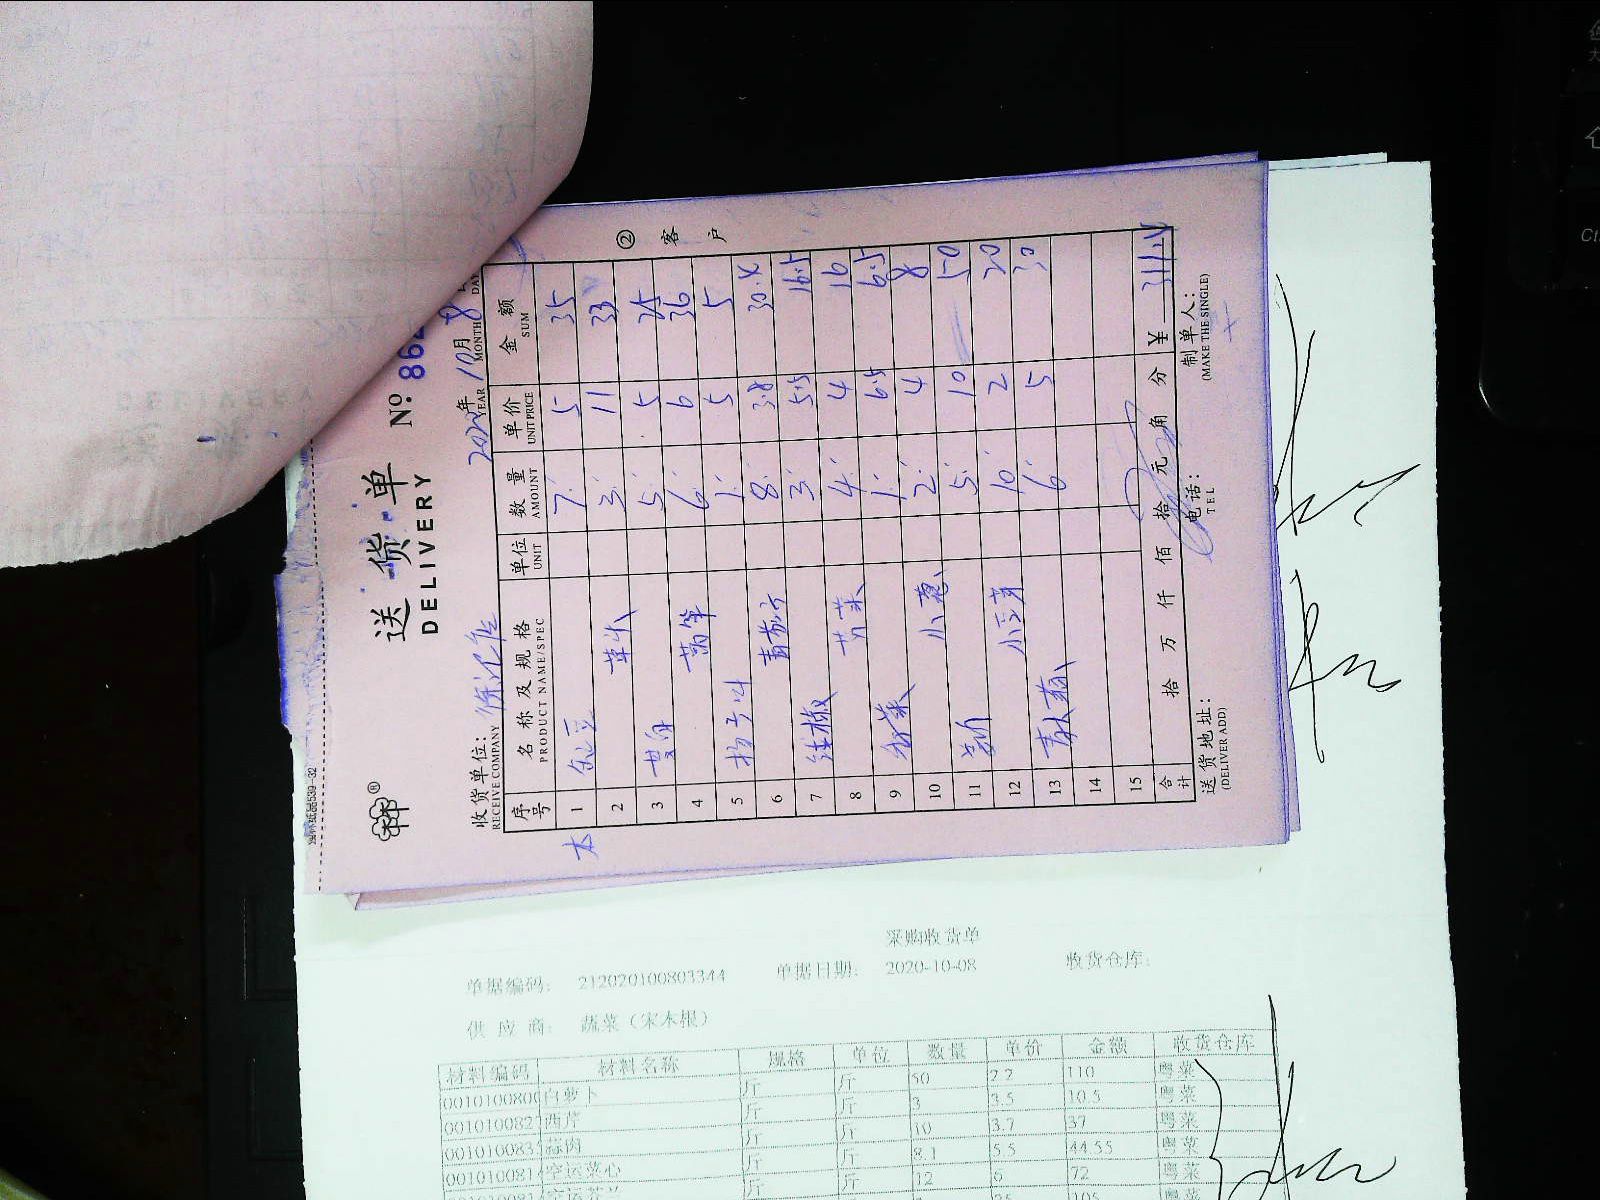 ② 客户
送货单
DELIVERY
No 862
2020年 10月 8
YEAR MONTH
收货单位:
RECEIVE COMPANY
序号 名称及规格 单位 数量 单价 金额
PRODUCT NAME/SPEC UNIT AMOUNT UNIT PRICE SUM
1 7 5 35
2 草头 3 11 33
3 5 5 25
4 莴笋 6 6 36
5 1 5 5
6 8 3.8 30.4
7 3 5.5 16.5
8 芹菜 4 4 16
9 香菜 1 6.5 6.5
10 小葱 2 4 8
11 5 10 50
12 小豆芽 10 2 20
13 6 5 30
14
15
合计 拾 万 仟 佰 拾 元 角 分 ¥ 311.4
送货地址: 电话: 制单人:
(DELIVER ADD) TEL (MAKE THE SINGLE)
采购收货单
单据编码: 212020100803344 单据日期: 2020-10-08 收货仓库:
供应商: 蔬菜(宋本根)
材料编码 材料名称 规格 单位 数量 单价 金额 收货仓库
0010100800 白萝卜 斤 斤 50 2.2 110 粤菜
001010082 西芹 斤 斤 3 3.5 10.5 粤菜
001010083 蒜肉 斤 斤 10 3.7 37 粤菜
001010081 空运菜心 斤 斤 8.1 5.5 44.55 粤菜
001010081 斤 斤 12 6 72 粤菜